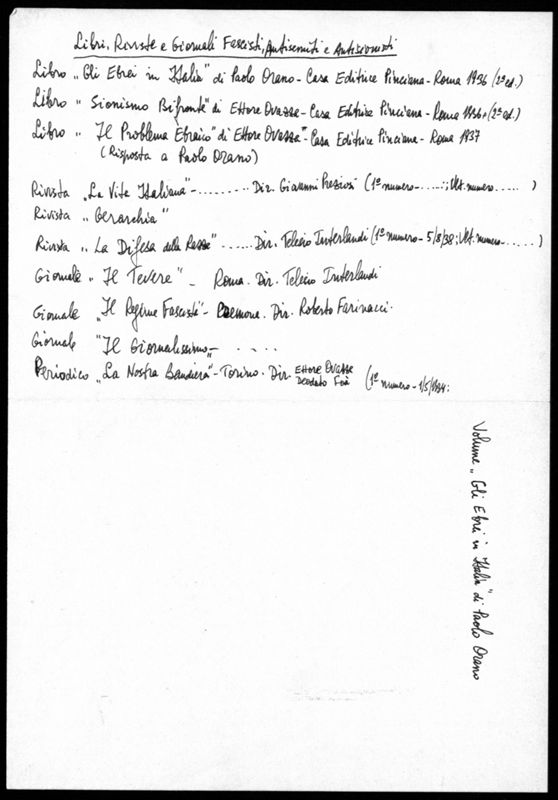 Libri, Riviste e Giornali Fascisti, Antisemiti e Antisionisti
Libro „Gli Ebrei in Italia" di Paolo Orano - Casa Editrice Pinciana - Roma 1936 (2ª ed.)
Libro „ Sionismo Bifronte" di Ettore Ovazza - Casa Editrice Pinciana - Roma 1936 (2ª ed.)
Libro „ Il Problema Ebraico" di Ettore Ovazza" - Casa Editrice Pinciana - Roma 1937
(Risposta a Paolo Orano)
Rivista „La Vita Italiana" - ......... Dir. Giovanni Preziosi (1º numero - .....; Ult. numero ..... )
Rivista „ Gerarchia"
Rivista „ La Difesa della Razza" ...... Dir. Telesio Interlandi (1º numero - 5/8/38; Ult. numero - ..... )
Giornale „ Il Tevere" - Roma. Dir. Telesio Interlandi
Giornale „Il Regime Fascista" - Cremona. Dir. Roberto Farinacci.
Giornale „Il Giornalissimo„ - . . . .
Periodico „La Nostra Bandiera" - Torino. Dir. Ettore Ovazza
Deodato Foà (1º numero - 1/5/1934:
Volume „ Gli Ebrei in Italia" di Paolo Orano